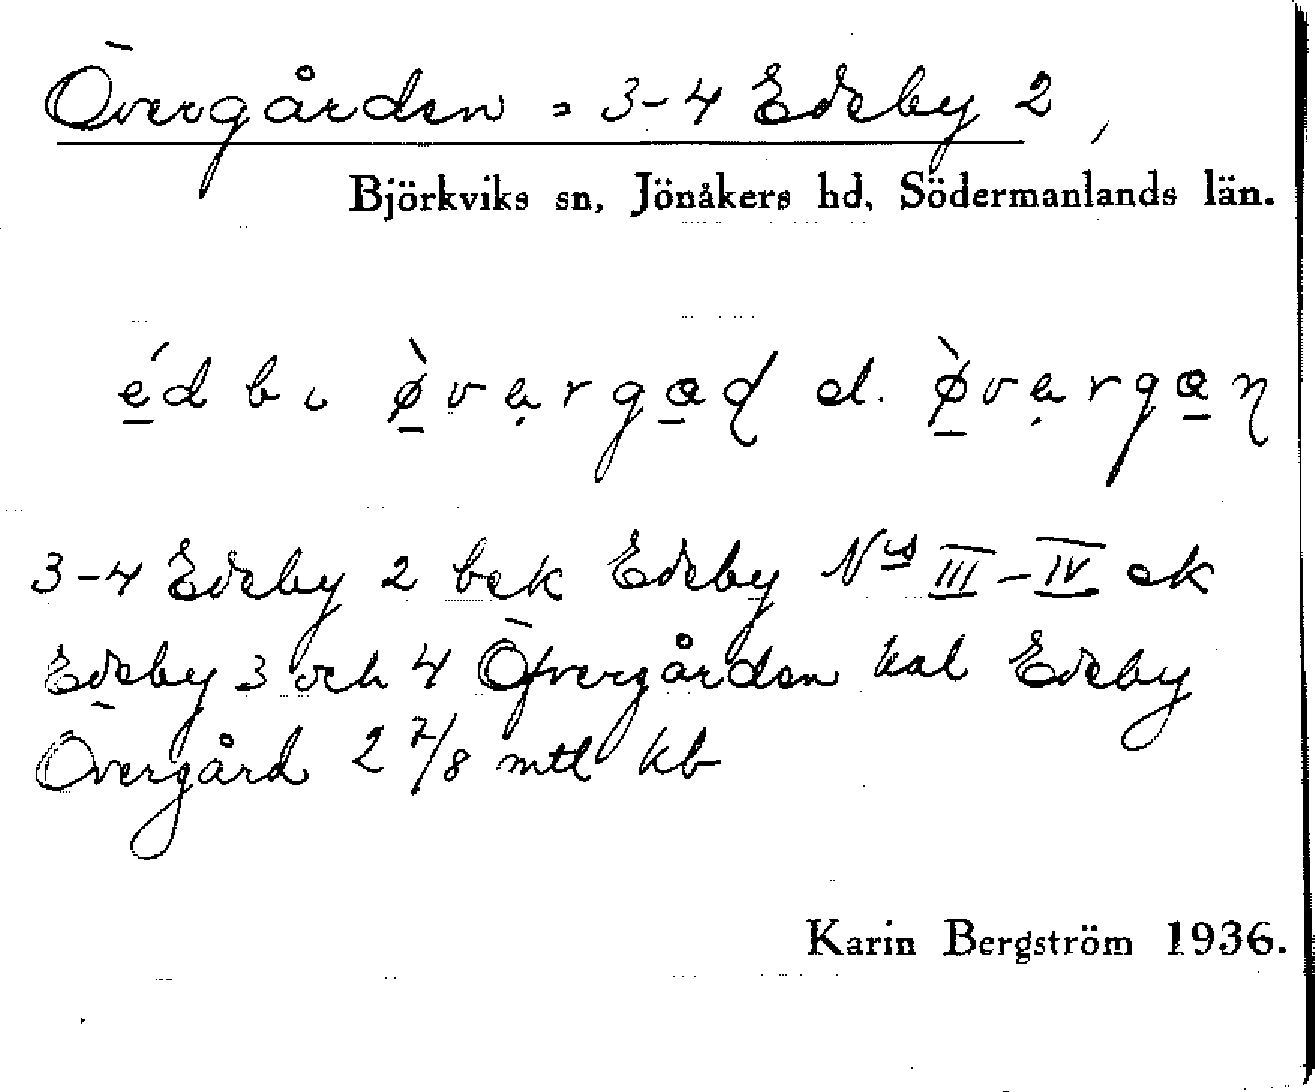 Övergården = 3-4 Edeby 2,
Björkviks sn, Jönåkers hd, Södermanlands län.
édbɩ ø̀vạrgad el. ø̀vạrgaɳ
3-4 Edeby 2 bek Edeby N<u>rs</u> III-IV ek
Edeby 3 och 4 Öfvergården kal Edeby
Övergård 2 7/8 mtl kb
Karin Bergström 1936.